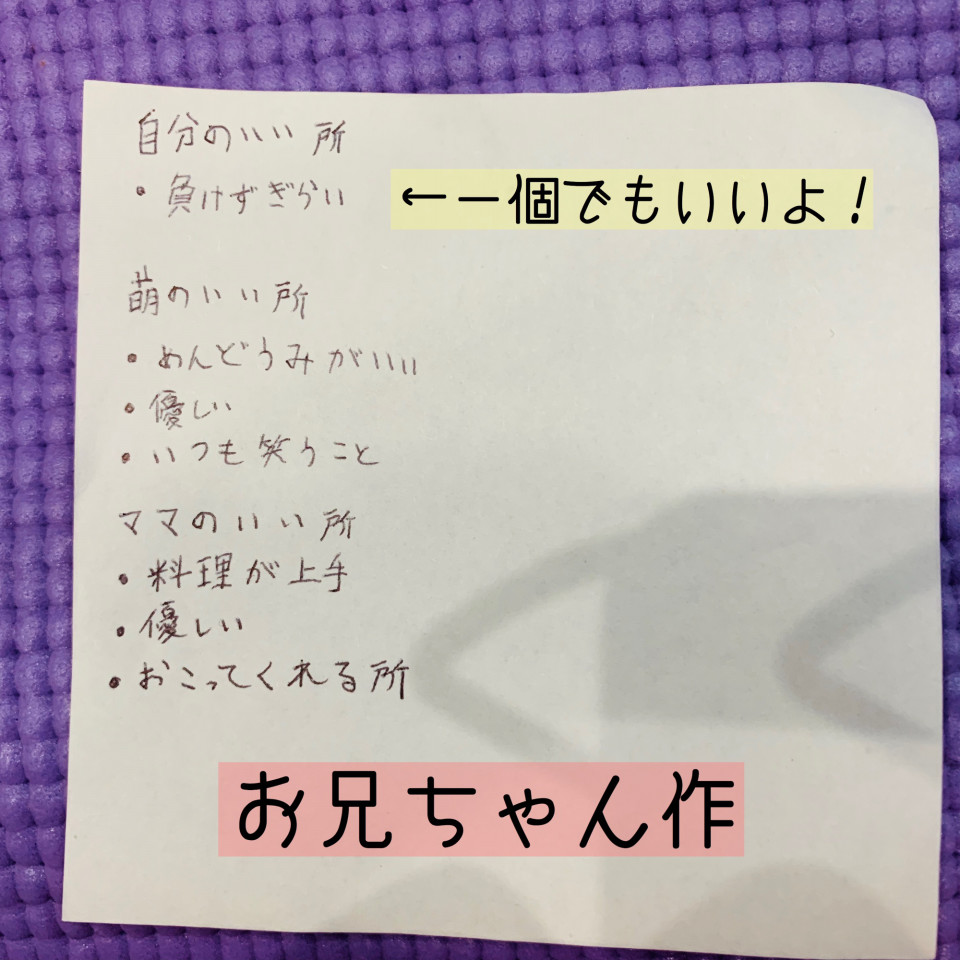 自分のいい所
・負けずぎらい ←一個でもいいよ！
萌のいい所
・めんどうみがいい
・優しい
・いつも笑うこと
ママのいい所
・料理が上手
・優しい
・おこってくれる所
お兄ちゃん作